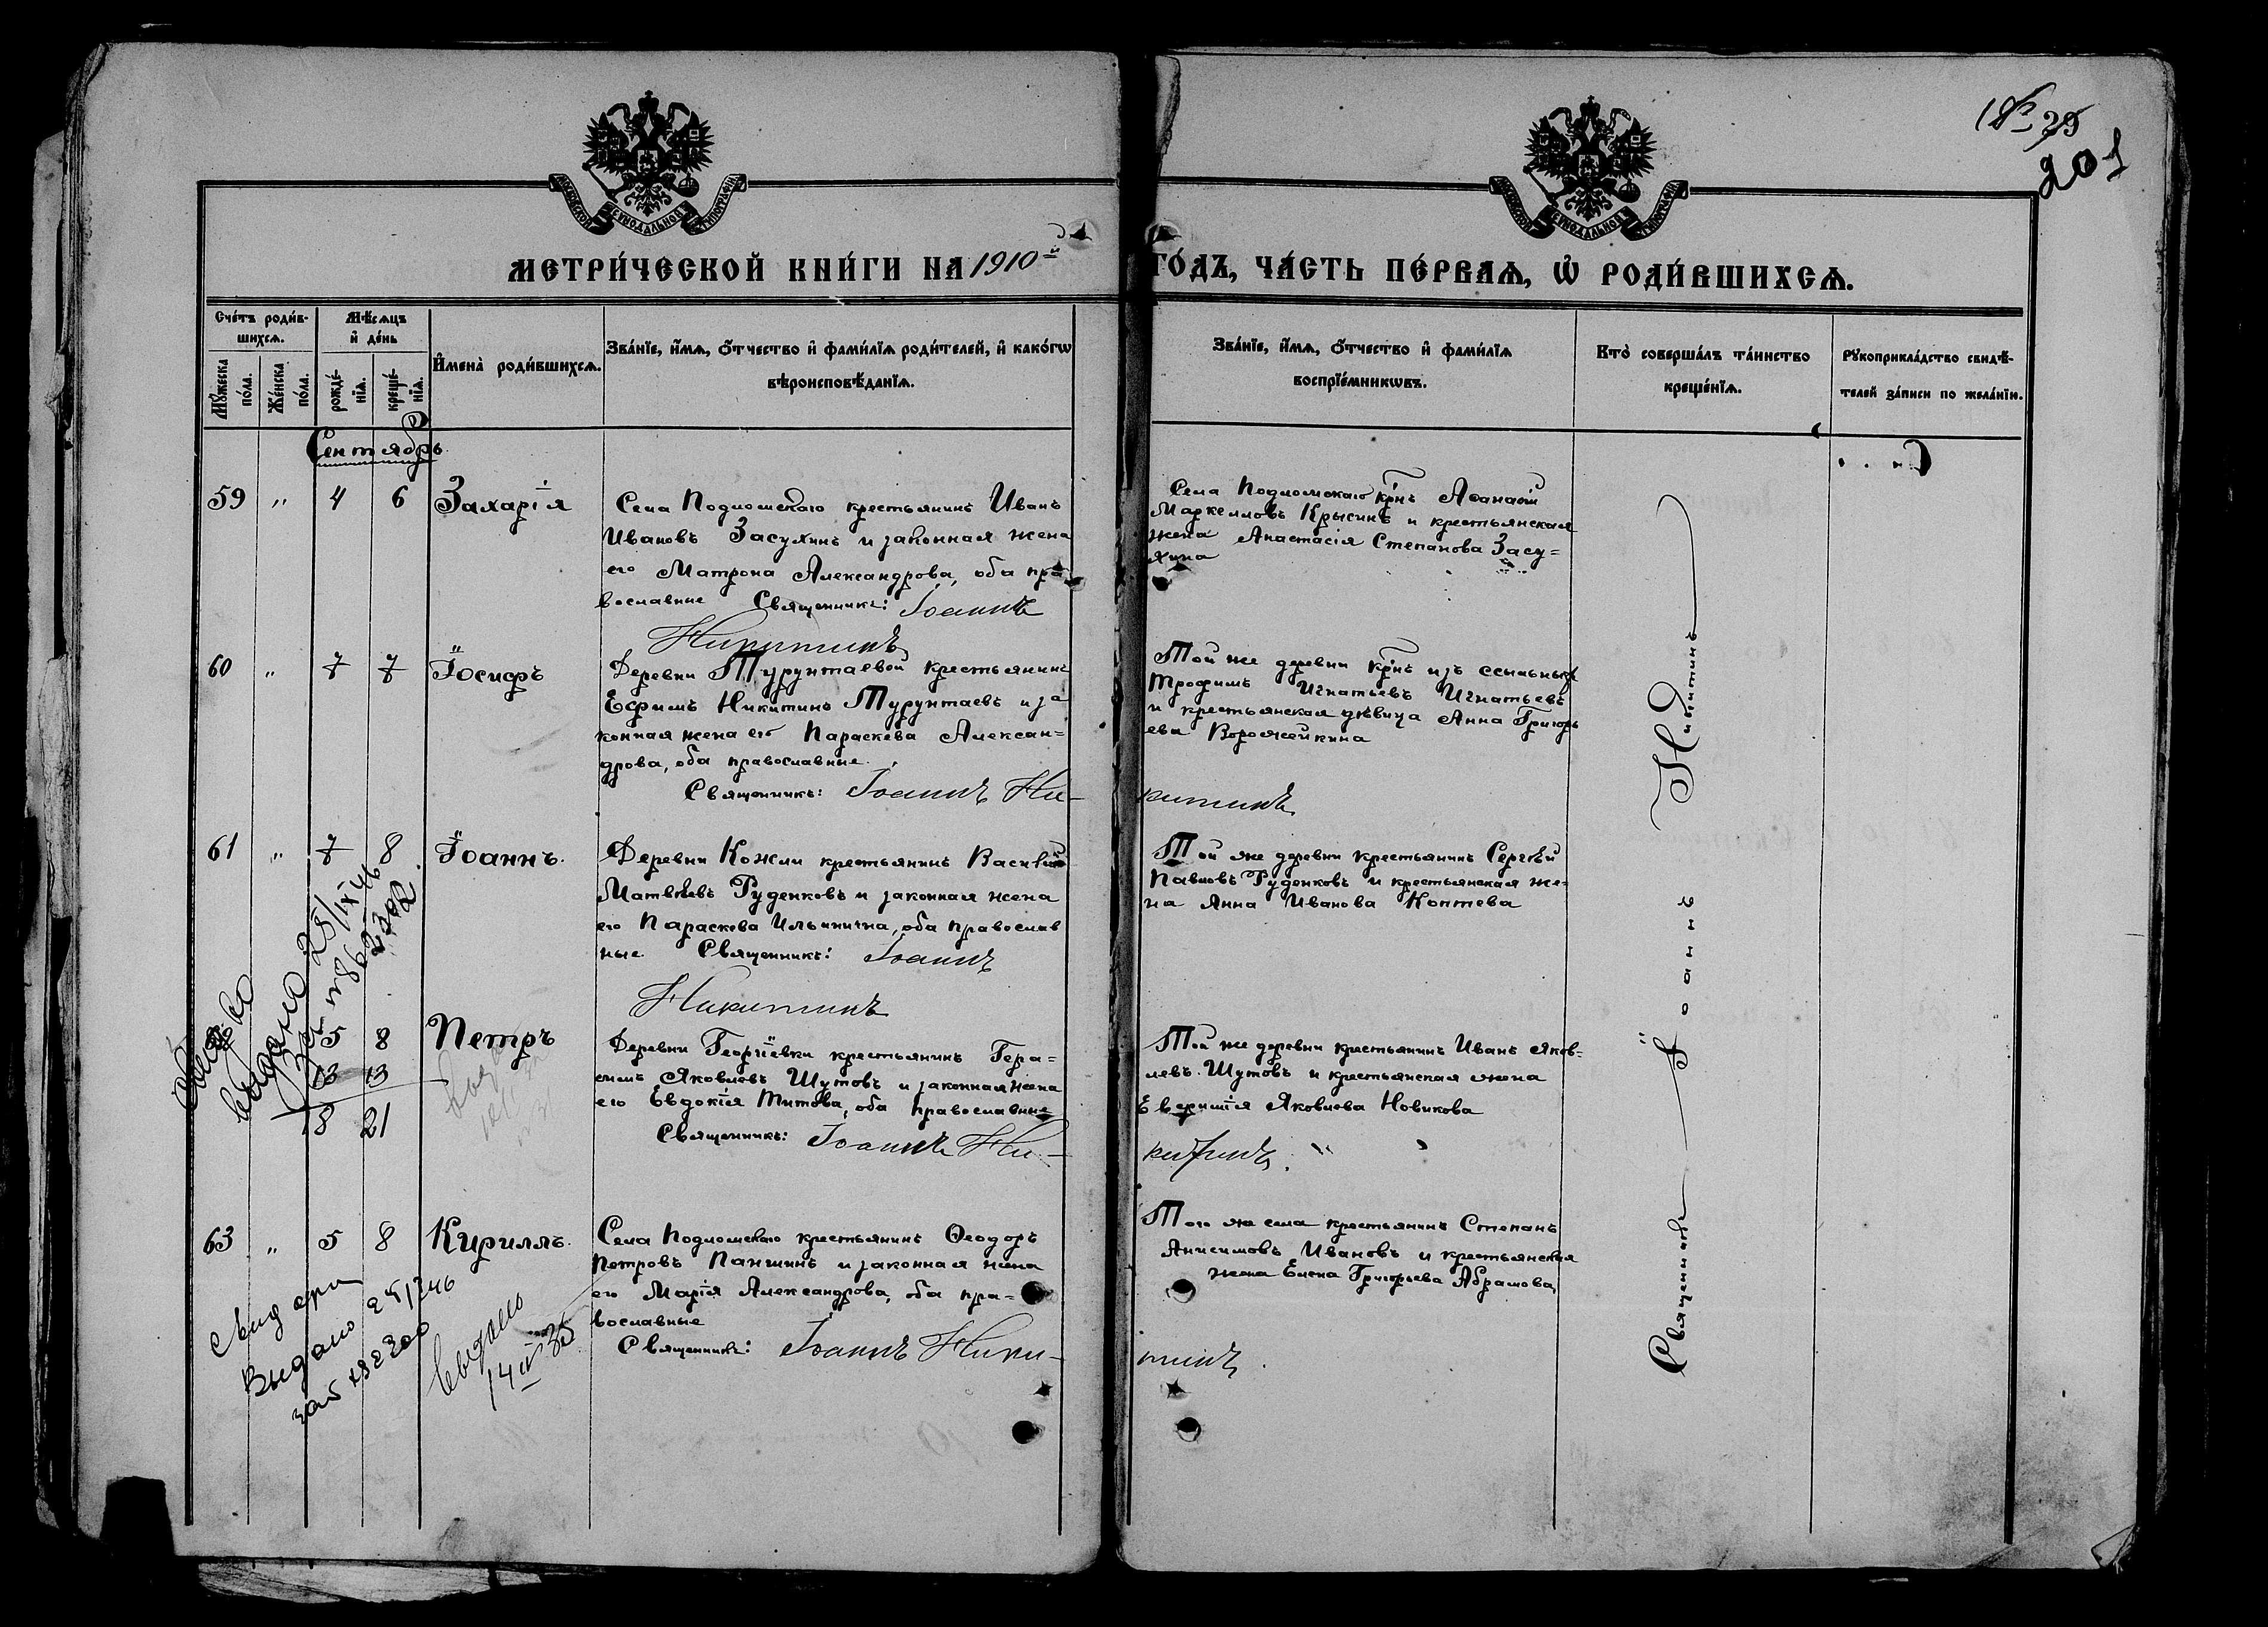 МОСКОВСКОЙ СѴНОДАЛЬНОЙ ТИПОГРАФІИ
МОСКОВСКОЙ СѴНОДАЛЬНОЙ ТИПОГРАФІИ
201
МЕТРИ́ЧЕСКОЙ КНИ́ГИ НА 1910й ГО́ДЪ, ЧА́СТЬ ПЕ́РВАѦ, Ѽ РОДИ́ВШИХСѦ.
Сче́тъ роди́в-
шихсѧ.
Мѣ́сѧцъ
и҆ де́нь
Мꙋ́жеска по́ла.
Же́нска по́ла.
рожде́-
нїѧ.
креще́-
нїѧ.
И҆мена̀ роди́вшихсѧ.
Зва́нїе, и҆́мѧ, ѻ҆́тчество и҆ фами́лїѧ роди́телей, и҆ како́гѡ
вѣроисповѣ́данїѧ.
Зва́нїе, и҆́мѧ, ѻ҆́тчество и҆ фами́лїѧ
воспрїе́мникѡвъ.
Кто̀ соверша́лъ та́инство
креще́нїѧ.
Рꙋкоприкла́дство свидѣ́-
телей за́писи по жела́нїю.
Сентябрь
59 " 4 6 Захарія
Села Подломскаго крестьянинъ Иванъ
Ивановъ Засухинъ и законная жена
его Матрона Александрова, оба пра
вославные Священникъ: Іоаннъ
Никитинъ
Села Подломскаго крнъ Аѳанасій
Маркелловъ Крысинъ и крестьянская
жена Анастасія Степанова Засу=
хина
60 " 7 7 Іосифъ
Деревни Турунтаевой крестьянинъ
Ефимъ Никитинъ Турунтаевъ и за
конная жена его Параскева Алексан=
дрова, оба православные.
Священникъ: Іоаннъ Ни-
китинъ
Той же деревни крнъ изъ ссыльныхъ
Трофимъ Игнатьевъ Игнатьевъ
и крестьянская дѣвица Анна Григорь
ева Ворожейкина
61 " 7 8 Іоаннъ.
Деревни Кожли крестьянинъ Василій
Матвѣевъ Руденковъ и законная жена
его Параскева Ильинична, оба православ
ные Священникъ: Іоаннъ
Никитинъ
Той же деревни крестьянинъ Сергѣй
Павловъ Руденковъ и крестьянская же=
на Анна Иванова Коптева
выдано 25/IX 46
5 8 Петръ
13 13
18 21
Деревни Георгіевки крестьянинъ Гера=
симъ Яковлевъ Шутовъ и законная жена
его Евдокія Титова, оба православные
Священникъ: Іоаннъ Ни-
китинъ.
Той же деревни крестьянинъ Иванъ Яков=
левъ Шутовъ и крестьянская жена
Яковлева Новикова
63 " 5 8 Кириллъ.
Села Подломскаго крестьянинъ Ѳеодоръ
Петровъ Паншинъ и законная жена
его Марія Александрова, оба пра=
вославные
Священникъ: Іоаннъ Ники-
тинъ.
Того же села крестьянинъ Степанъ
Анисимовъ Ивановъ и крестьянская
жена Елена Григорьева Абрамова,
Выдано
выдано
14 35
Священникъ Іоаннъ Никитинъ